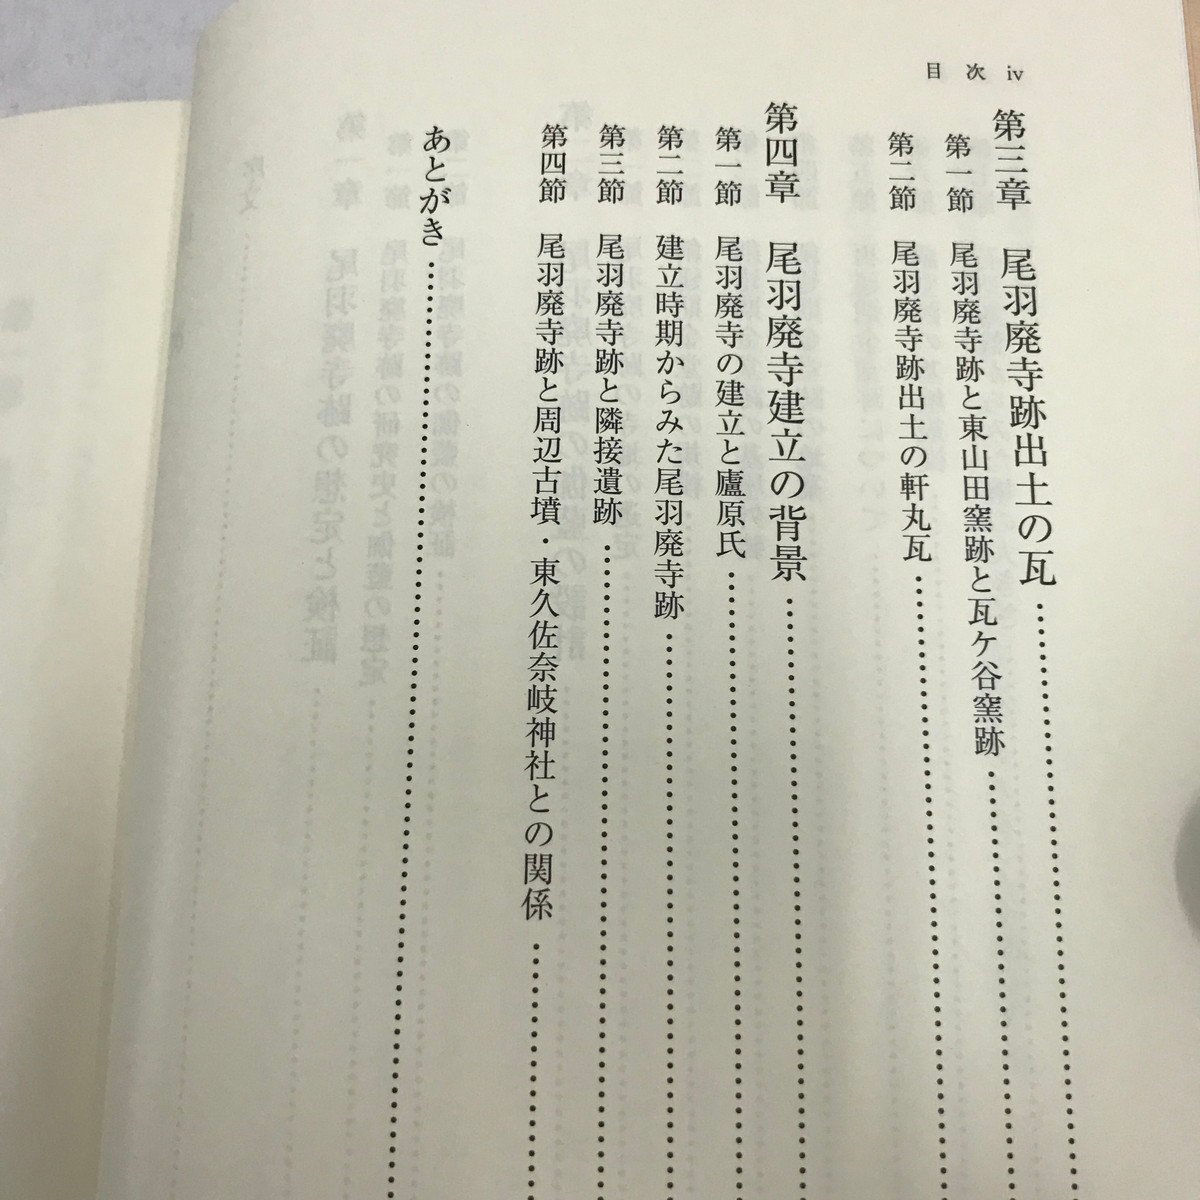 目次 iv
第三章 尾羽廃寺跡出土の瓦
第一節 尾羽廃寺跡と東山田窯跡と瓦ケ谷窯跡
第二節 尾羽廃寺跡出土の軒丸瓦
第四章 尾羽廃寺建立の背景
第一節 尾羽廃寺の建立と廬原氏
第二節 建立時期からみた尾羽廃寺跡
第三節 尾羽廃寺跡と隣接遺跡
第四節 尾羽廃寺跡と周辺古墳・東久佐奈岐神社との関係
あとがき